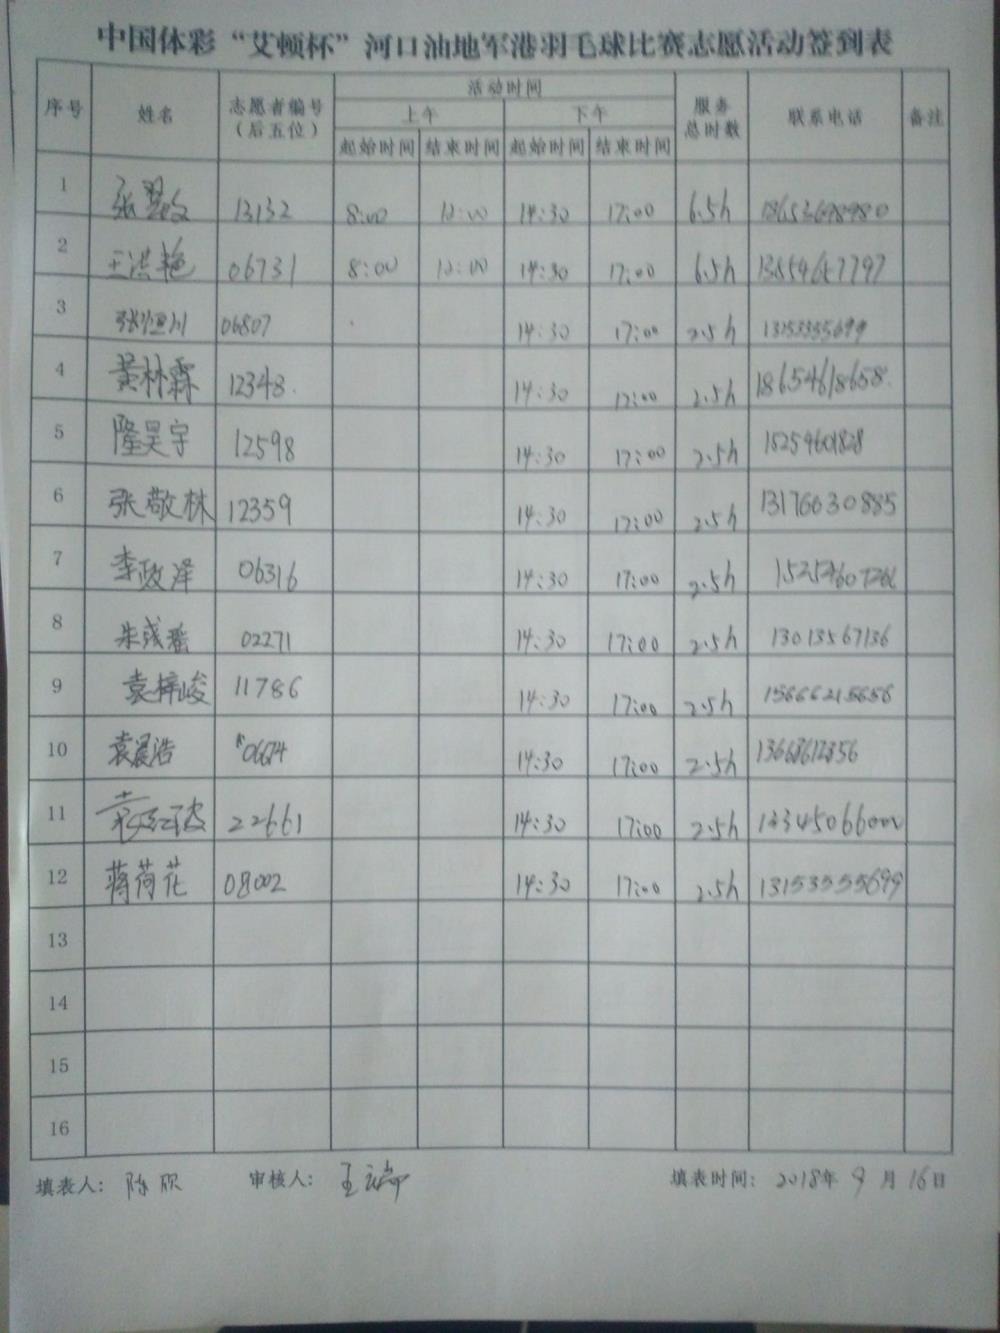 中国体彩“艾顿杯”河口油地军港羽毛球比赛志愿活动签到表
序号 姓名 志愿者编号（后五位） 活动时间 服务总时数 联系电话 备注
上午 下午
起始时间 结束时间 起始时间 结束时间
1 13132 8:00 12:00 14:30 17:00 6.5h 18653698980
2 王洪艳 06731 8:00 12:00 14:30 17:00 6.5h
3 张恒川 06807 14:30 17:00 2.5h
4 黄林霖 12348 14:30 17:00 2.5h 18654618658
5 隆昊宇 12598 14:30 17:00 2.5h 15254601828
6 张敬林 12359 14:30 17:00 2.5h 13176630885
7 李政泽 06316 14:30 17:00 2.5h
8 02271 14:30 17:00 2.5h 13013567136
9 袁梓峻 11786 14:30 17:00 2.5h 15666215656
10 袁晨浩 14:30 17:00 2.5h
11 22661 14:30 17:00 2.5h
12 蒋荷花 08002 14:30 17:00 2.5h 13153555699
13
14
15
16
填表人： 陈欣 审核人： 王 填表时间： 2018年 9 月 16日